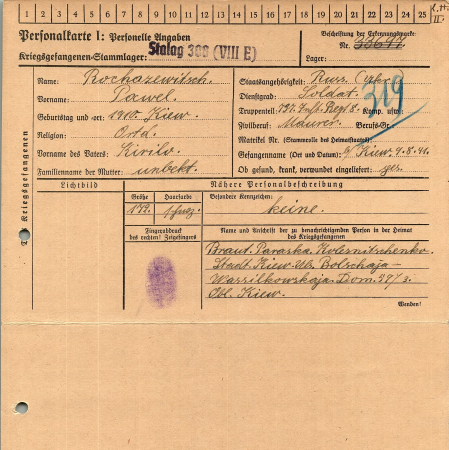 1 2 3 4 5 6 7 8 9 10 11 12 13 14 15 16 17 18 19 20 21 22 23 24 25
II.
Personalkarte I: Personelle Angaben
Kriegsgefangenen-Stammlager: Stalag 308 (VIII E)
Beschriftung der Erkennungsmarke:
Nr. 33677
Lager:
319
Des Kriegsgefangenen
Name: Rochazewitsch.
Vorname: Pawel.
Geburtstag und -ort: 1910. Kiew.
Religion: Ortd.
Vorname des Vaters: Kirilo.
Familienname der Mutter: unbekt.
Staatsangehörigkeit: Russ.
Dienstgrad: Soldat.
Truppenteil: Inf. Regt. Komp. usw.:
Zivilberuf: Maurer. Berufs-Gr.:
Matrikel Nr. (Stammrolle des Heimatstaates):
Gefangennahme (Ort und Datum): Kiew. 9.8.41.
Ob gesund, krank, verwundet eingeliefert: ges.
Lichtbild
Nähere Personalbeschreibung
Größe
Haarfarbe
Besondere Kennzeichen:
172. schwz.
keine.
Fingerabdruck
des rechten! Zeigefingers
Name und Anschrift der zu benachrichtigenden Person in der Heimat
des Kriegsgefangenen
Braut. Paraska. Kolesnitschenko.
Stadt. Kiew. Ul. Bolschaja-
Wassilkowskaja. Dom. 37/3.
Obl. Kiew.
Wenden!